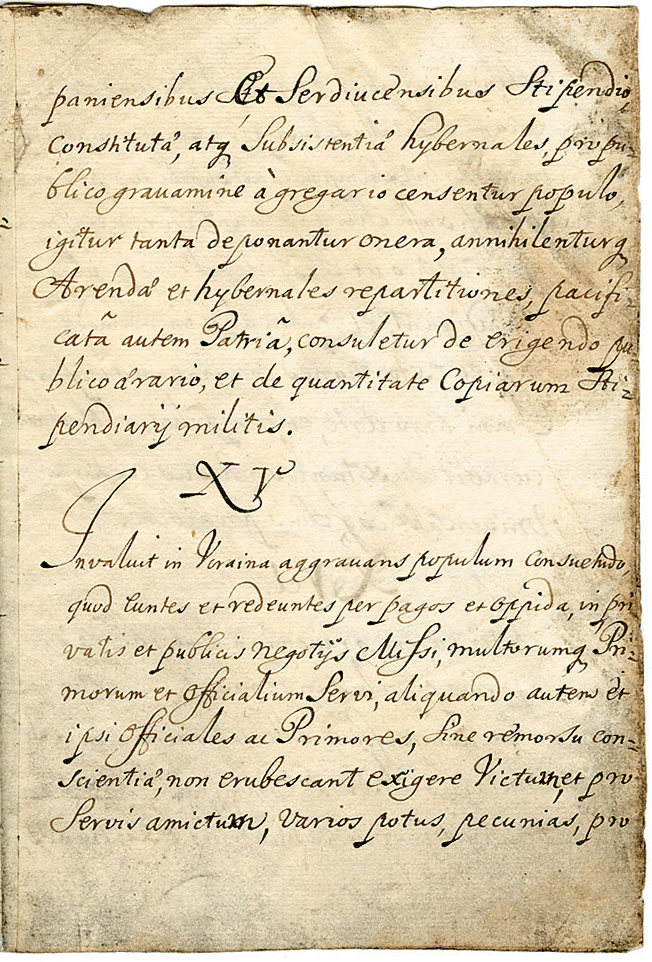 paniensibus Et Serdiucensibus Stipendio,
Constituta, atq Subsistentia hybernales, pro pu-
blico gravamine à gregario censentur populo,
igitur tanta deponantur onera, annihilenturq
Arenda et hybernales repartitiones, pacifi-
catâ autem Patriâ, consuletur de erigendo pu
blico ærario, et de quantitate Copiarum Sti-
pendiarij militis.
XV
Invaluit in Ucraina aggravans populum consuetudo,
quod Euntes et redeuntes per pagos et oppida, in pri
vatis et publicis negotijs Missi, multorumq Pri-
morum et Officialium Servi, aliquando autem et
ipsi Officiales ac Primores, Sine remorsu con-
scientia, non erubescant exigere Victum, et pro
Servis amictum, varios potus, pecunias, pro